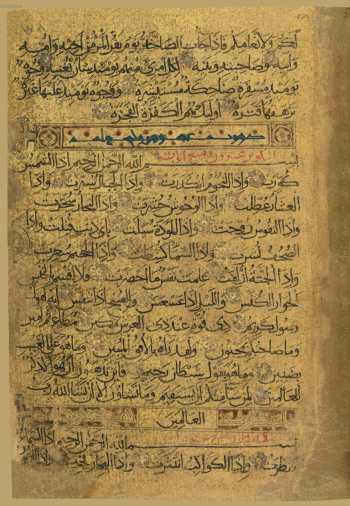 لكم ولانعامكم فاذا جات الصاخة يوم يفر المرء من اخيه وامه
وابيه وصاحبته وبنيه لكل امرئ منهم يومئذ شان يغنيه وجوه
يومئذ مسفرة ضاحكة مستبشرة ووجوه يومئذ عليها غبرة
ترهقها قترة اولئك هم الكفرة الفجرة
بسم الله الرحمن الرحيم اذا الشمس
كورت واذا النجوم انكدرت واذا الجبال سيرت واذا
العشار عطلت واذا الوحوش حشرت واذا البحار سجرت
واذا النفوس زوجت واذا الموودة سئلت باي ذنب قتلت واذا
الصحف نشرت واذا السما كشطت واذا الجحيم سعرت
واذا الجنة ازلفت علمت نفس ما احضرت فلا اقسم بالخنس
الجوار الكنس والليل اذا عسعس والصبح اذا تنفس انه لقول
رسول كريم ذي قوة عند ذي العرش مكين مطاع ثم امين
وما صاحبكم بمجنون ولقد راه بالافق المبين وما هو على الغيب
بضنين وما هو بقول شيطان رجيم فاين تذهبون ان هو الا ذكر
للعالمين لمن شا منكم ان يستقيم وما تشاون الا ان يشا الله رب
العالمين
بسم الله الرحمن الرحيم اذا السما
انفطرت واذا الكواكب انتثرت واذا البحار فجرت